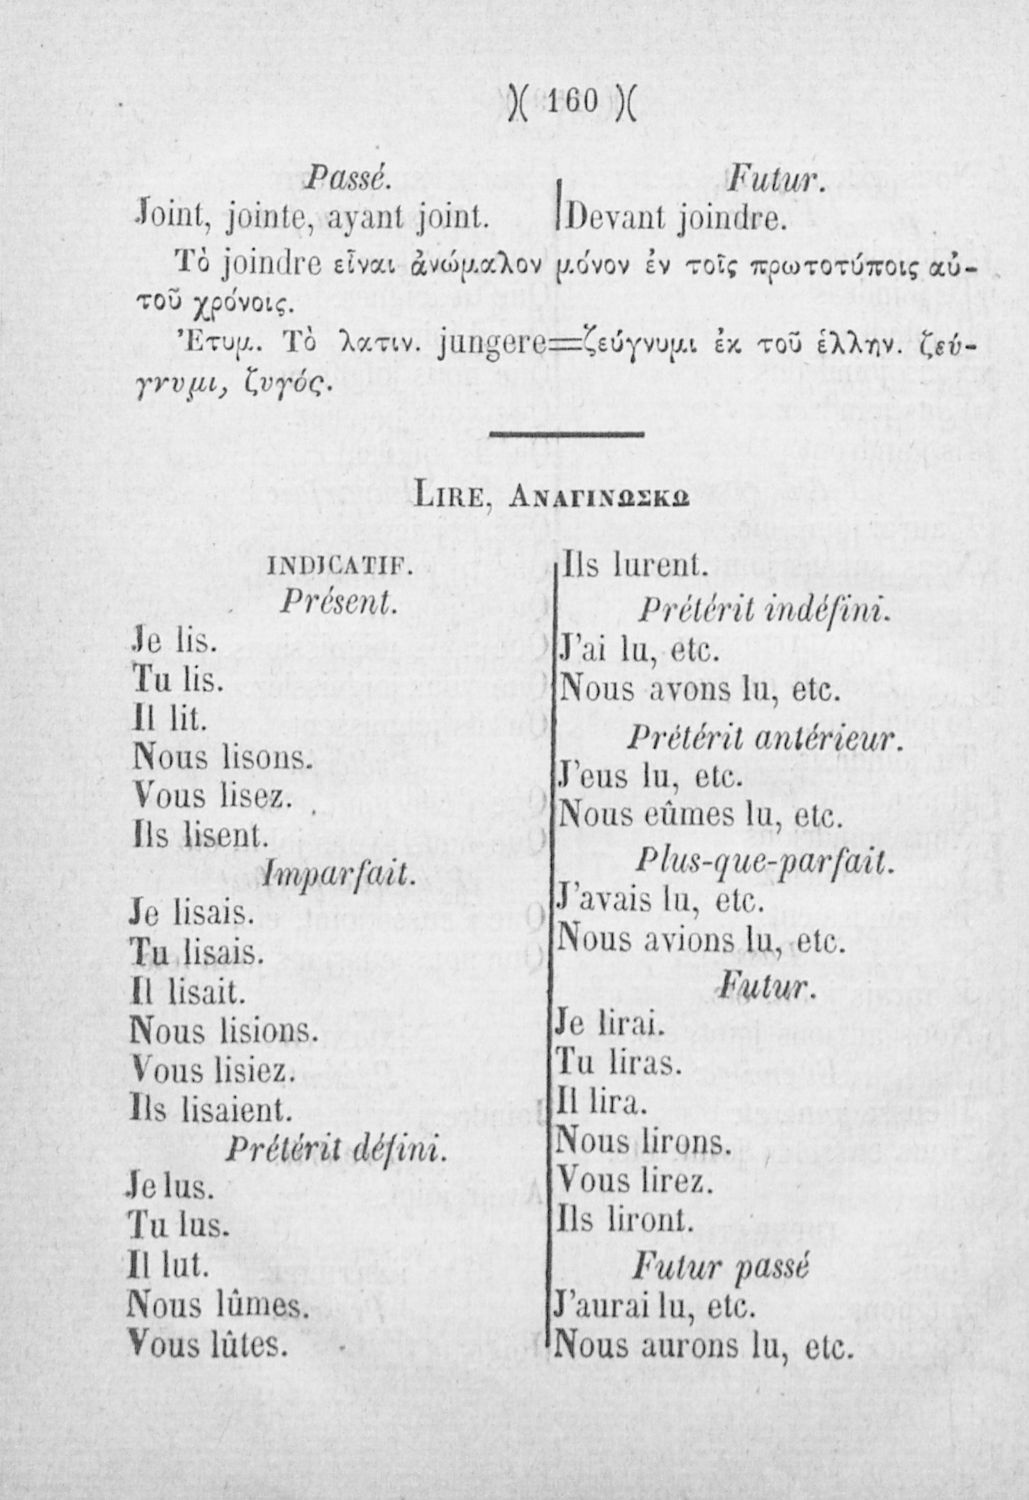 )( 160 )(
Passé.
Joint, jointe, ayant joint.
Futur.
Devant joindre.
Τὸ joindre εἶναι ἀνώμαλον μόνον ἐν τοῖς πρωτοτύποις αὐ-
τοῦ χρόνοις.
Ἐτυμ. Τὸ λατιν. jungere=ζεύγνυμι ἐκ τοῦ ἑλλην. ζεύ-
γνυμι, ζυγός.
LIRE, ΑΝΑΓΙΝΩΣΚΩ
INDICATIF.
Présent.
Je lis.
Tu lis.
Il lit.
Nous lisons.
Vous lisez.
Ils lisent.
Imparfait.
Je lisais.
Tu lisais.
Il lisait.
Nous lisions.
Vous lisiez.
Ils lisaient.
Prétérit défini.
Je lus.
Tu lus.
Il lut.
Nous lûmes.
Vous lûtes.
Ils lurent.
Prétérit indéfini.
J'ai lu, etc.
Nous avons lu, etc.
Prétérit antérieur.
J'eus lu, etc.
Nous eûmes lu, etc.
Plus-que-parfait.
J'avais lu, etc.
Nous avions lu, etc.
Futur.
Je lirai.
Tu liras.
Il lira.
Nous lirons.
Vous lirez.
Ils liront.
Futur passé
J'aurai lu, etc.
Nous aurons lu, etc.